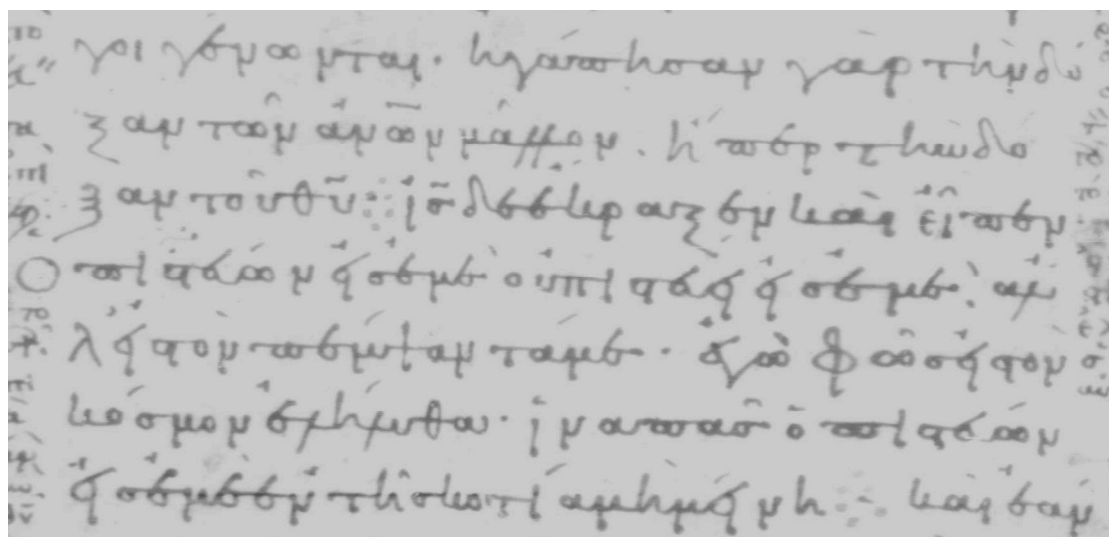 γοι γένωνται· ἠγάπησαν γὰρ τὴν δό
ξαν τῶν ἀν̅ω̅ν μᾶλλον· ἤπερ τὴν δό
ξαν τοῦ θ̅υ̅ ⁘ ἰ̅ς̅ δὲ ἔκραξεν καὶ εἶπεν
Ο πιστεύων εἰς ἐμὲ οὐ πιστεύει εἰς ἐμὲ· ἀλ
λ εἰς τὸν πέμψαντά με· ἐγὼ φῶς εἰς τὸν
κόσμον ἐλήλυθα· ἵνα πᾶς ὁ πιστεύων
εἰς ἐμὲ ἐν τῇ σκοτία μὴ μείνη ⁘ καὶ ἐάν